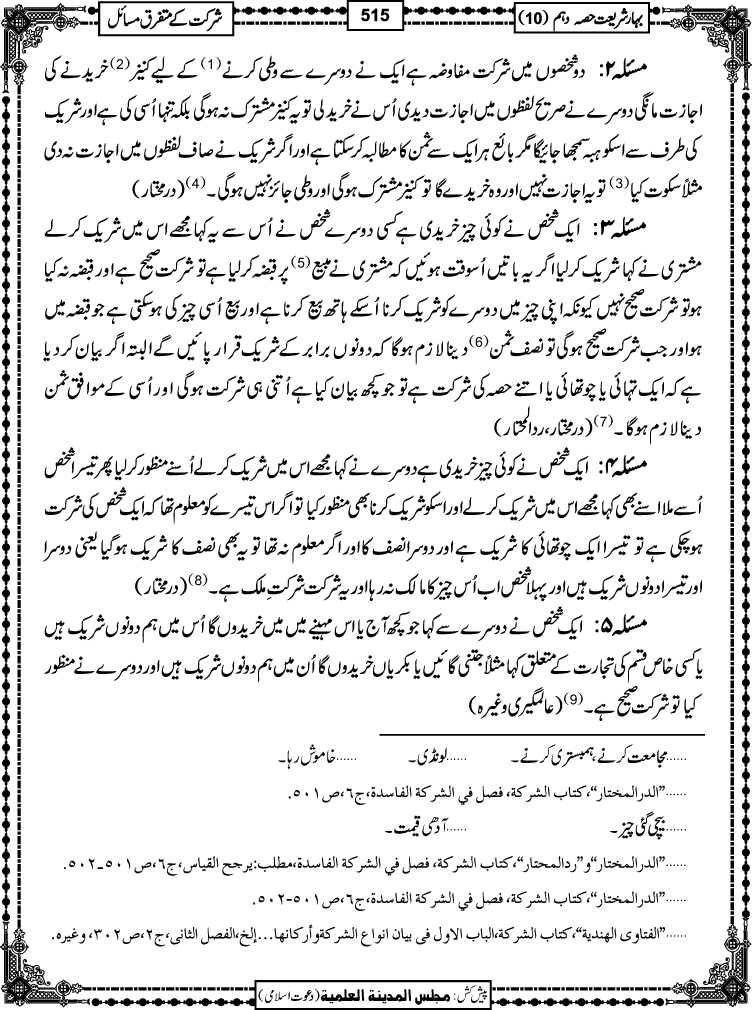 بہار شریعت حصہ دہم (10)
515
شرکت کے متفرق مسائل
مسئلہ ۲: دو شخصوں میں شرکت مفاوضہ ہے ایک نے دوسرے سے وطی کرنے (1) کے لیے کنیز (2) خریدنے کی
اجازت مانگی دوسرے نے صریح لفظوں میں اجازت دیدی اُس نے خریدلی تو یہ کنیز مشترک نہ ہوگی بلکہ تنہا اُسی کی ہے اور شریک
کی طرف سے اسکو ہبہ سمجھا جائیگا مگر بائع ہر ایک سے ثمن کا مطالبہ کر سکتا ہے اور اگر شریک نے صاف لفظوں میں اجازت نہ دی
مثلاً سکوت کیا (3) تو یہ اجازت نہیں اور وہ خریدے گا تو کنیز مشترک ہوگی اور وطی جائز نہیں ہوگی۔ (4) (درمختار)
مسئلہ ۳: ایک شخص نے کوئی چیز خریدی ہے کسی دوسرے شخص نے اُس سے یہ کہا مجھے اس میں شریک کر لے
مشتری نے کہا شریک کر لیا اگر یہ باتیں اُسوقت ہوئیں کہ مشتری نے مبیع (5) پر قبضہ کر لیا ہے تو شرکت صحیح ہے اور قبضہ نہ کیا
ہو تو شرکت صحیح نہیں کیونکہ اپنی چیز میں دوسرے کو شریک کرنا اُسکے ہاتھ بیع کرنا ہے اور بیع اُسی چیز کی ہوسکتی ہے جو قبضہ میں
ہو اور جب شرکت صحیح ہوگی تو نصف ثمن (6) دینا لازم ہوگا کہ دونوں برابر کے شریک قرار پائیں گے البتہ اگر بیان کر دیا
ہے کہ ایک تہائی یا چوتھائی یا اتنے حصہ کی شرکت ہے تو جو کچھ بیان کیا ہے اُتنی ہی شرکت ہوگی اور اُسی کے موافق ثمن
دینا لازم ہوگا۔ (7) (درمختار، ردالمحتار)
مسئلہ ۴: ایک شخص نے کوئی چیز خریدی ہے دوسرے نے کہا مجھے اس میں شریک کر لے اُسنے منظور کر لیا پھر تیسرا شخص
اُسے ملا اسنے بھی کہا مجھے اس میں شریک کر لے اور اسکو شریک کرنا بھی منظور کیا تو اگر اس تیسرے کو معلوم تھا کہ ایک شخص کی شرکت
ہو چکی ہے تو تیسرا ایک چوتھائی کا شریک ہے اور دوسرا نصف کا اور اگر معلوم نہ تھا تو یہ بھی نصف کا شریک ہوگیا یعنی دوسرا
اور تیسرا دونوں شریک ہیں اور پہلا شخص اب اُس چیز کا مالک نہ رہا اور یہ شرکت شرکتِ ملک ہے۔ (8) (درمختار)
مسئلہ ۵: ایک شخص نے دوسرے سے کہا جو کچھ آج یا اس مہینے میں میں خریدوں گا اُس میں ہم دونوں شریک ہیں
یا کسی خاص قسم کی تجارت کے متعلق کہا مثلاً جتنی گائیں یا بکریاں خریدوں گا اُن میں ہم دونوں شریک ہیں اور دوسرے نے منظور
کیا تو شرکت صحیح ہے۔ (9) (عالمگیری وغیرہ)
......مجامعت کرنے، ہمبستری کرنے۔ ......لونڈی۔ ......خاموش رہا۔
......"الدرالمختار"، کتاب الشرکة، فصل في الشرکة الفاسدة، ج٦، ص٥٠١.
......بیچی گئی چیز۔ ......آدھی قیمت۔
......"الدرالمختار" و"ردالمحتار"، کتاب الشرکة، فصل في الشرکة الفاسدة، مطلب: یرجح القیاس، ج٦، ص٥٠١-٥٠٢.
......"الدرالمختار"، کتاب الشرکة، فصل في الشرکة الفاسدة، ج٦، ص٥٠١-٥٠٢.
......"الفتاوی الهندیة"، کتاب الشرکة، الباب الاول فی بیان انواع الشرکة وأرکانها...إلخ، الفصل الثانی، ج٢، ص٣٠٢، وغیرہ.
پیش کش: مجلس المدینة العلمیة (دعوت اسلامی)